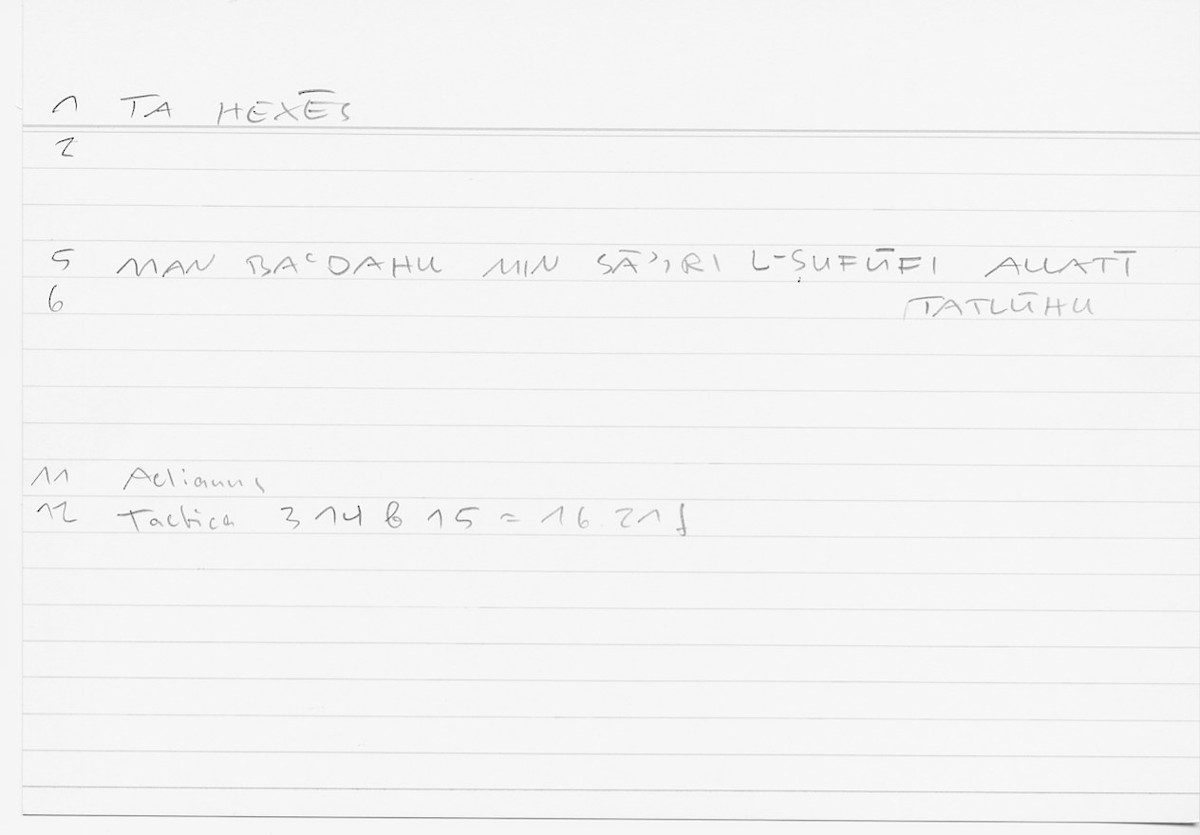 1 TA HEXĒS
2
5 MAN BAʿDAHU MIN SĀʾIRI L-ṢUFŪFI ALLATĪ
6 TATLŪHU
11 Aelianus
12 Tactica 314 b 15 = 16.21 f